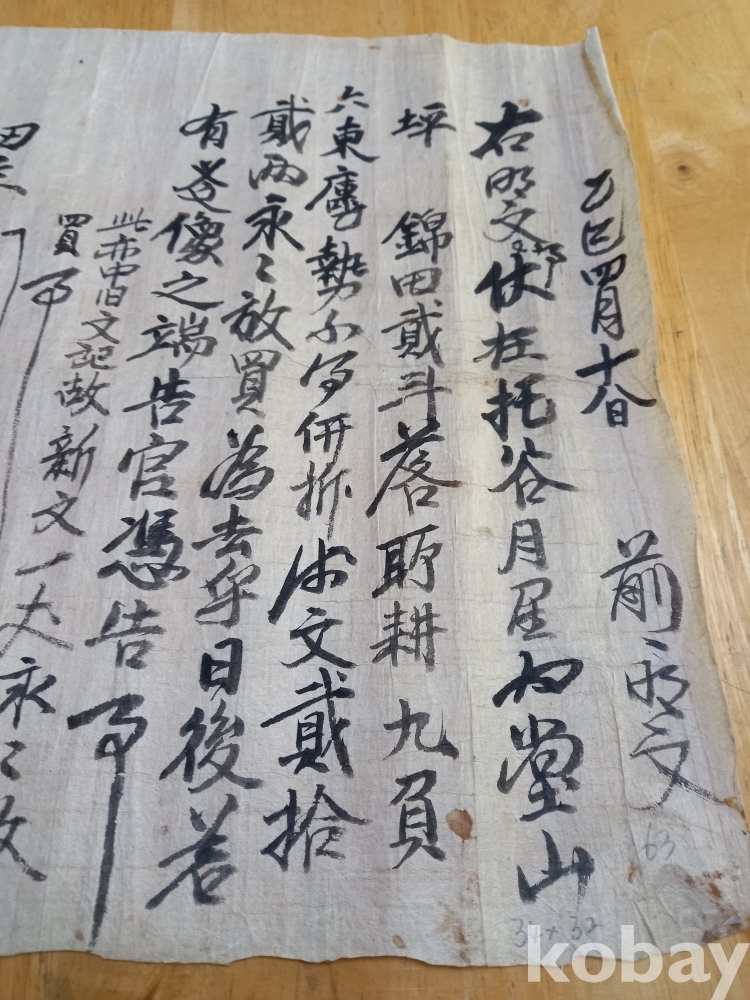 乙巳四月十八日 前明文
右明文事伏在托谷月星洞堂山
坪 錦田貳斗落所耕九負
六束廤勢不得併折錢文貳拾
貳兩永〻放買爲去乎日後若
有爻像之端告官憑告事
此亦中旧文記故新文一丈永〻放
買事
田主
63
32
kobay